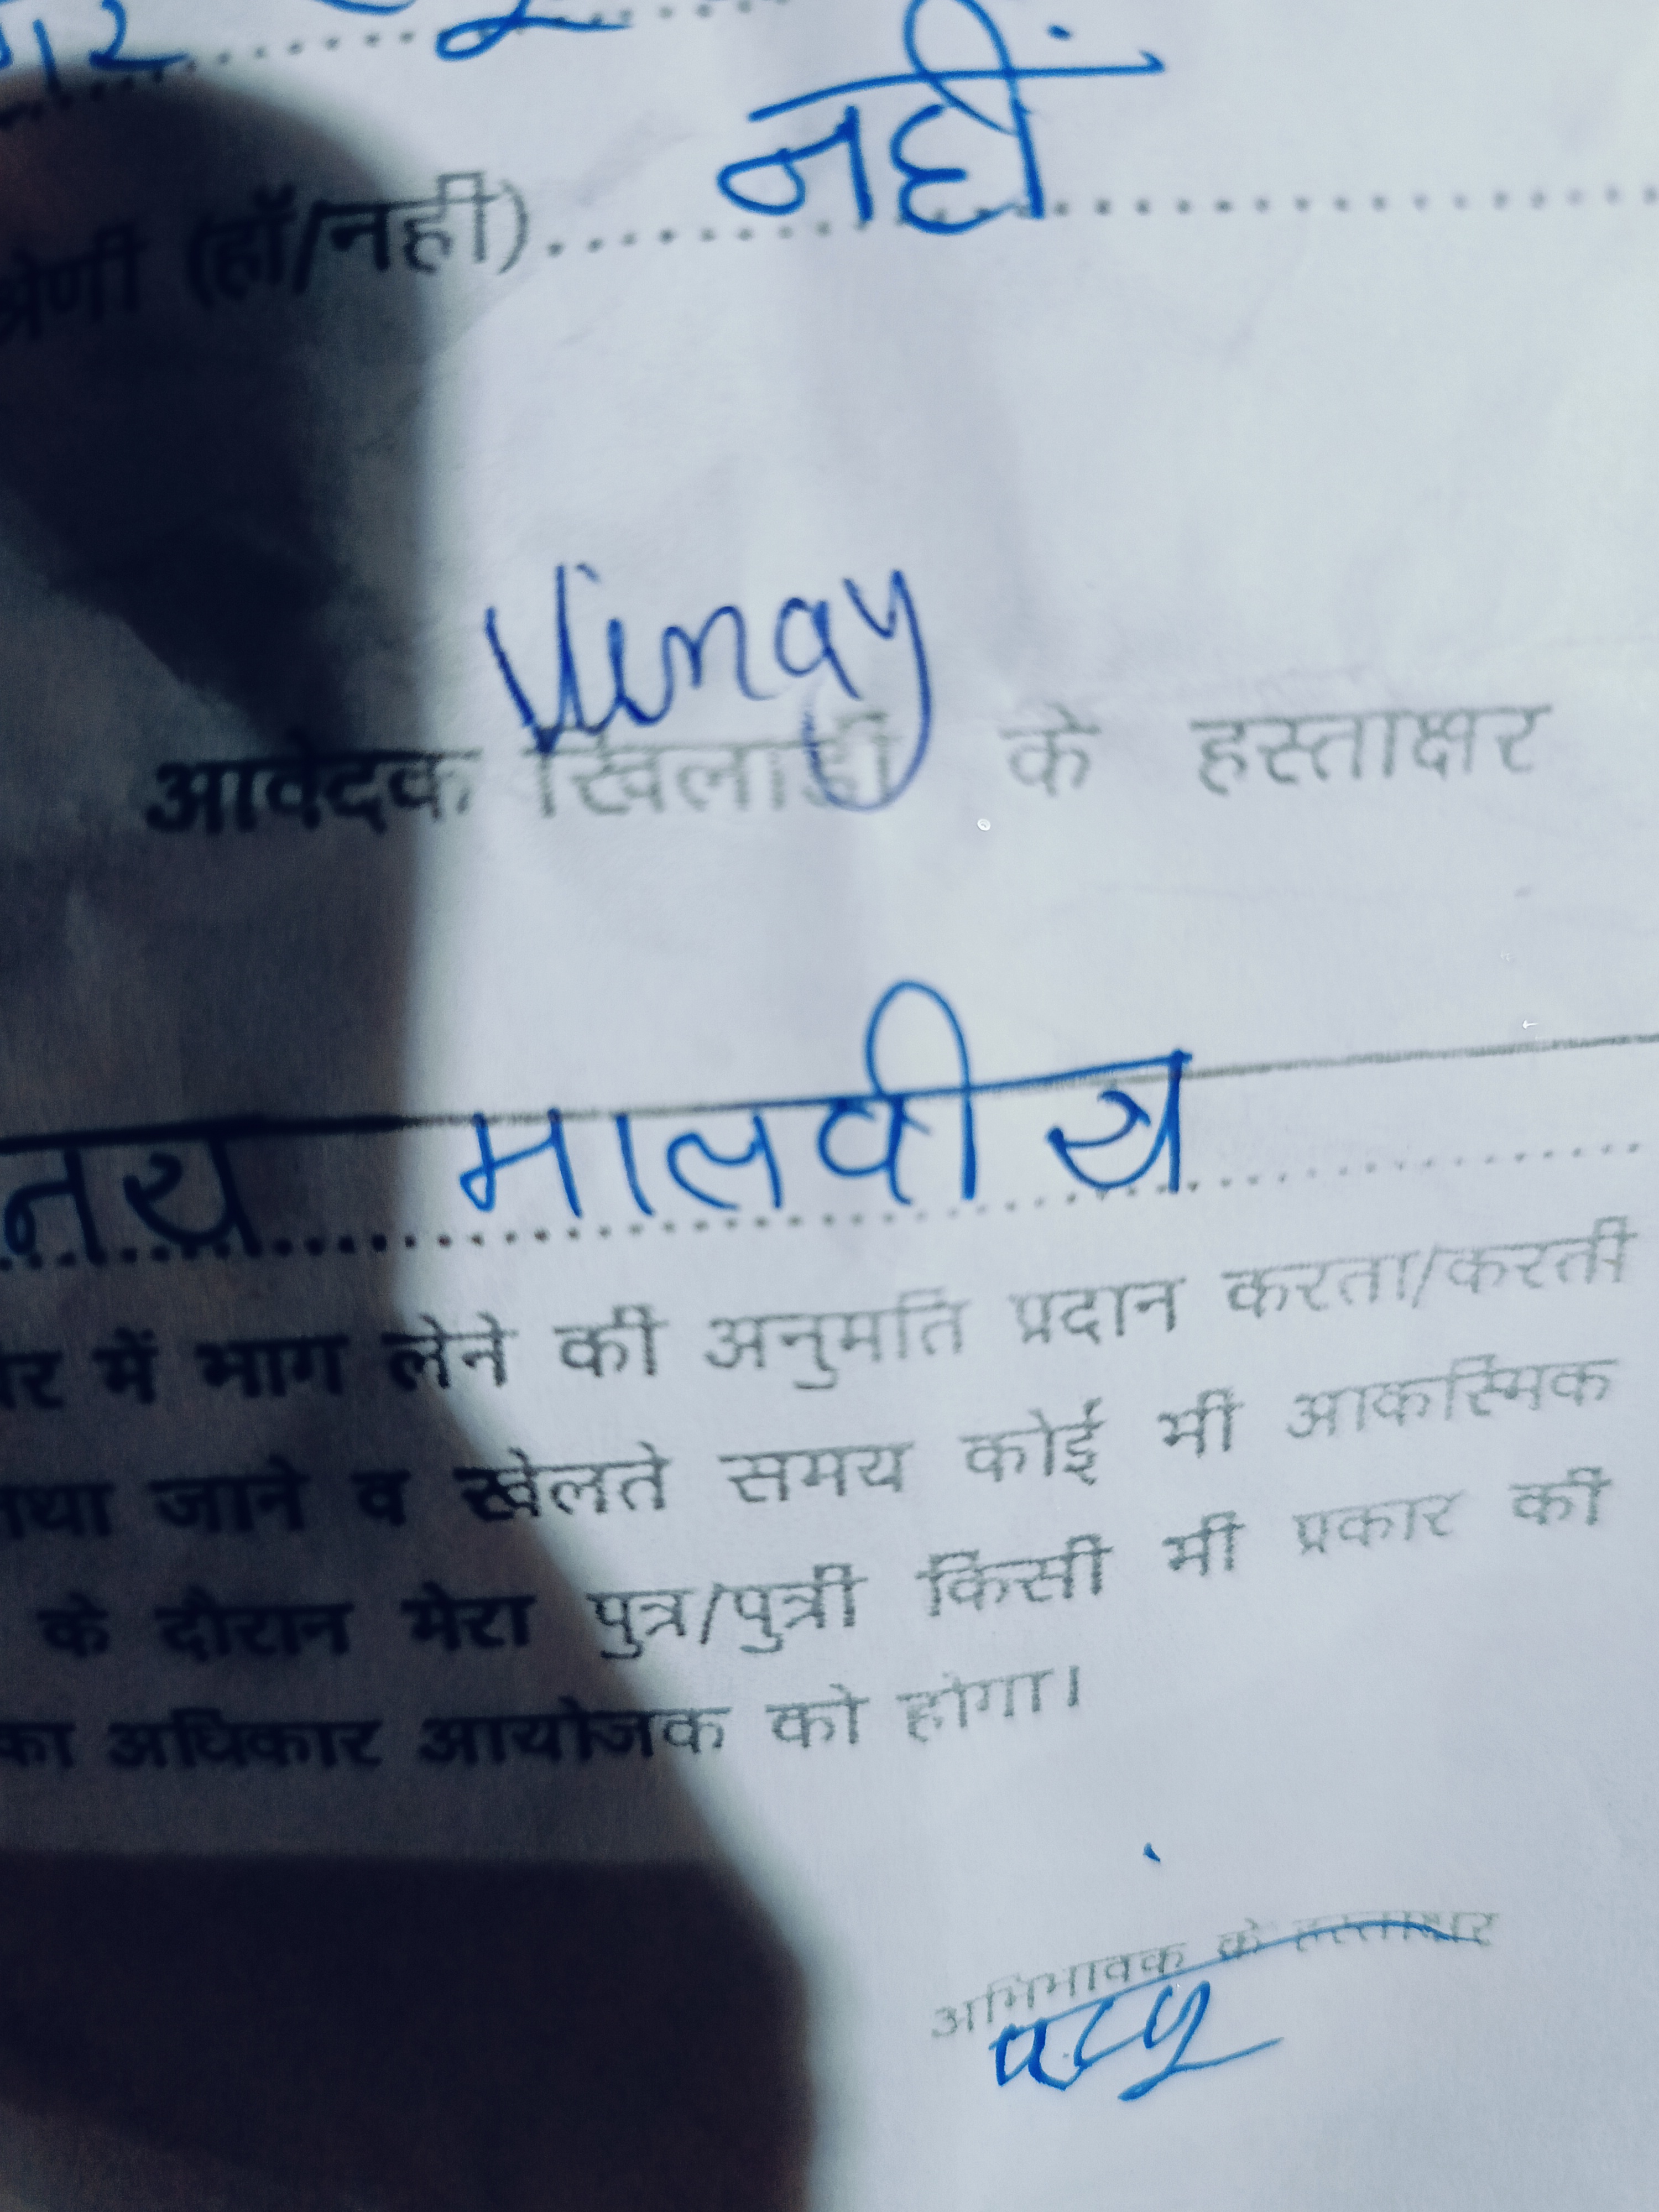 श्रेणी (हॉ/नहीं) नहीं
Vinay
आवेदक खिलाडी के हस्ताक्षर
नय मालवीय
में भाग लेने की अनुमति प्रदान करता/करती
तथा जाने व खेलते समय कोई भी आकस्मिक
के दौरान मेरा पुत्र/पुत्री किसी भी प्रकार की
का अधिकार आयोजक को होगा।
अभिभावक के हस्ताक्षर